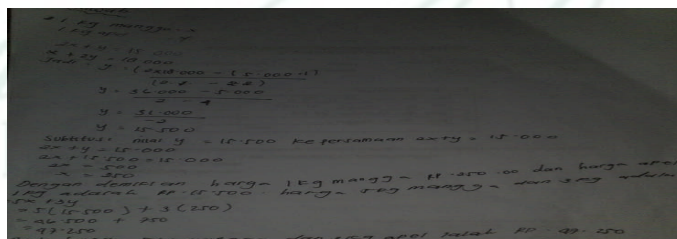 1 kg mangga = x
1 kg apel = y
2x + y = 15.000
x + 2y = 18.000
Jadi = y = (2x18.000 - 15.000.1)
y = 36.000 - 5.000
2 - 4
y = 31.000
-2
y = 15.500
Subtitusi nilai y = 15.500 ke persamaan 2x+y = 15.000
2x + y = 15.000
2x + 15.500 = 15.000
2x = 500
x = 250
Dengan demikian harga 1 kg mangga RP.250.00 dan harga apel
1 kg adalah RP.15.500. harga 5kg mangga dan 3 kg
5x + 3y
= 5(15.500) + 3(250)
= 46.500 + 750
= 47.250
dan 3 kg apel RP. 47.250